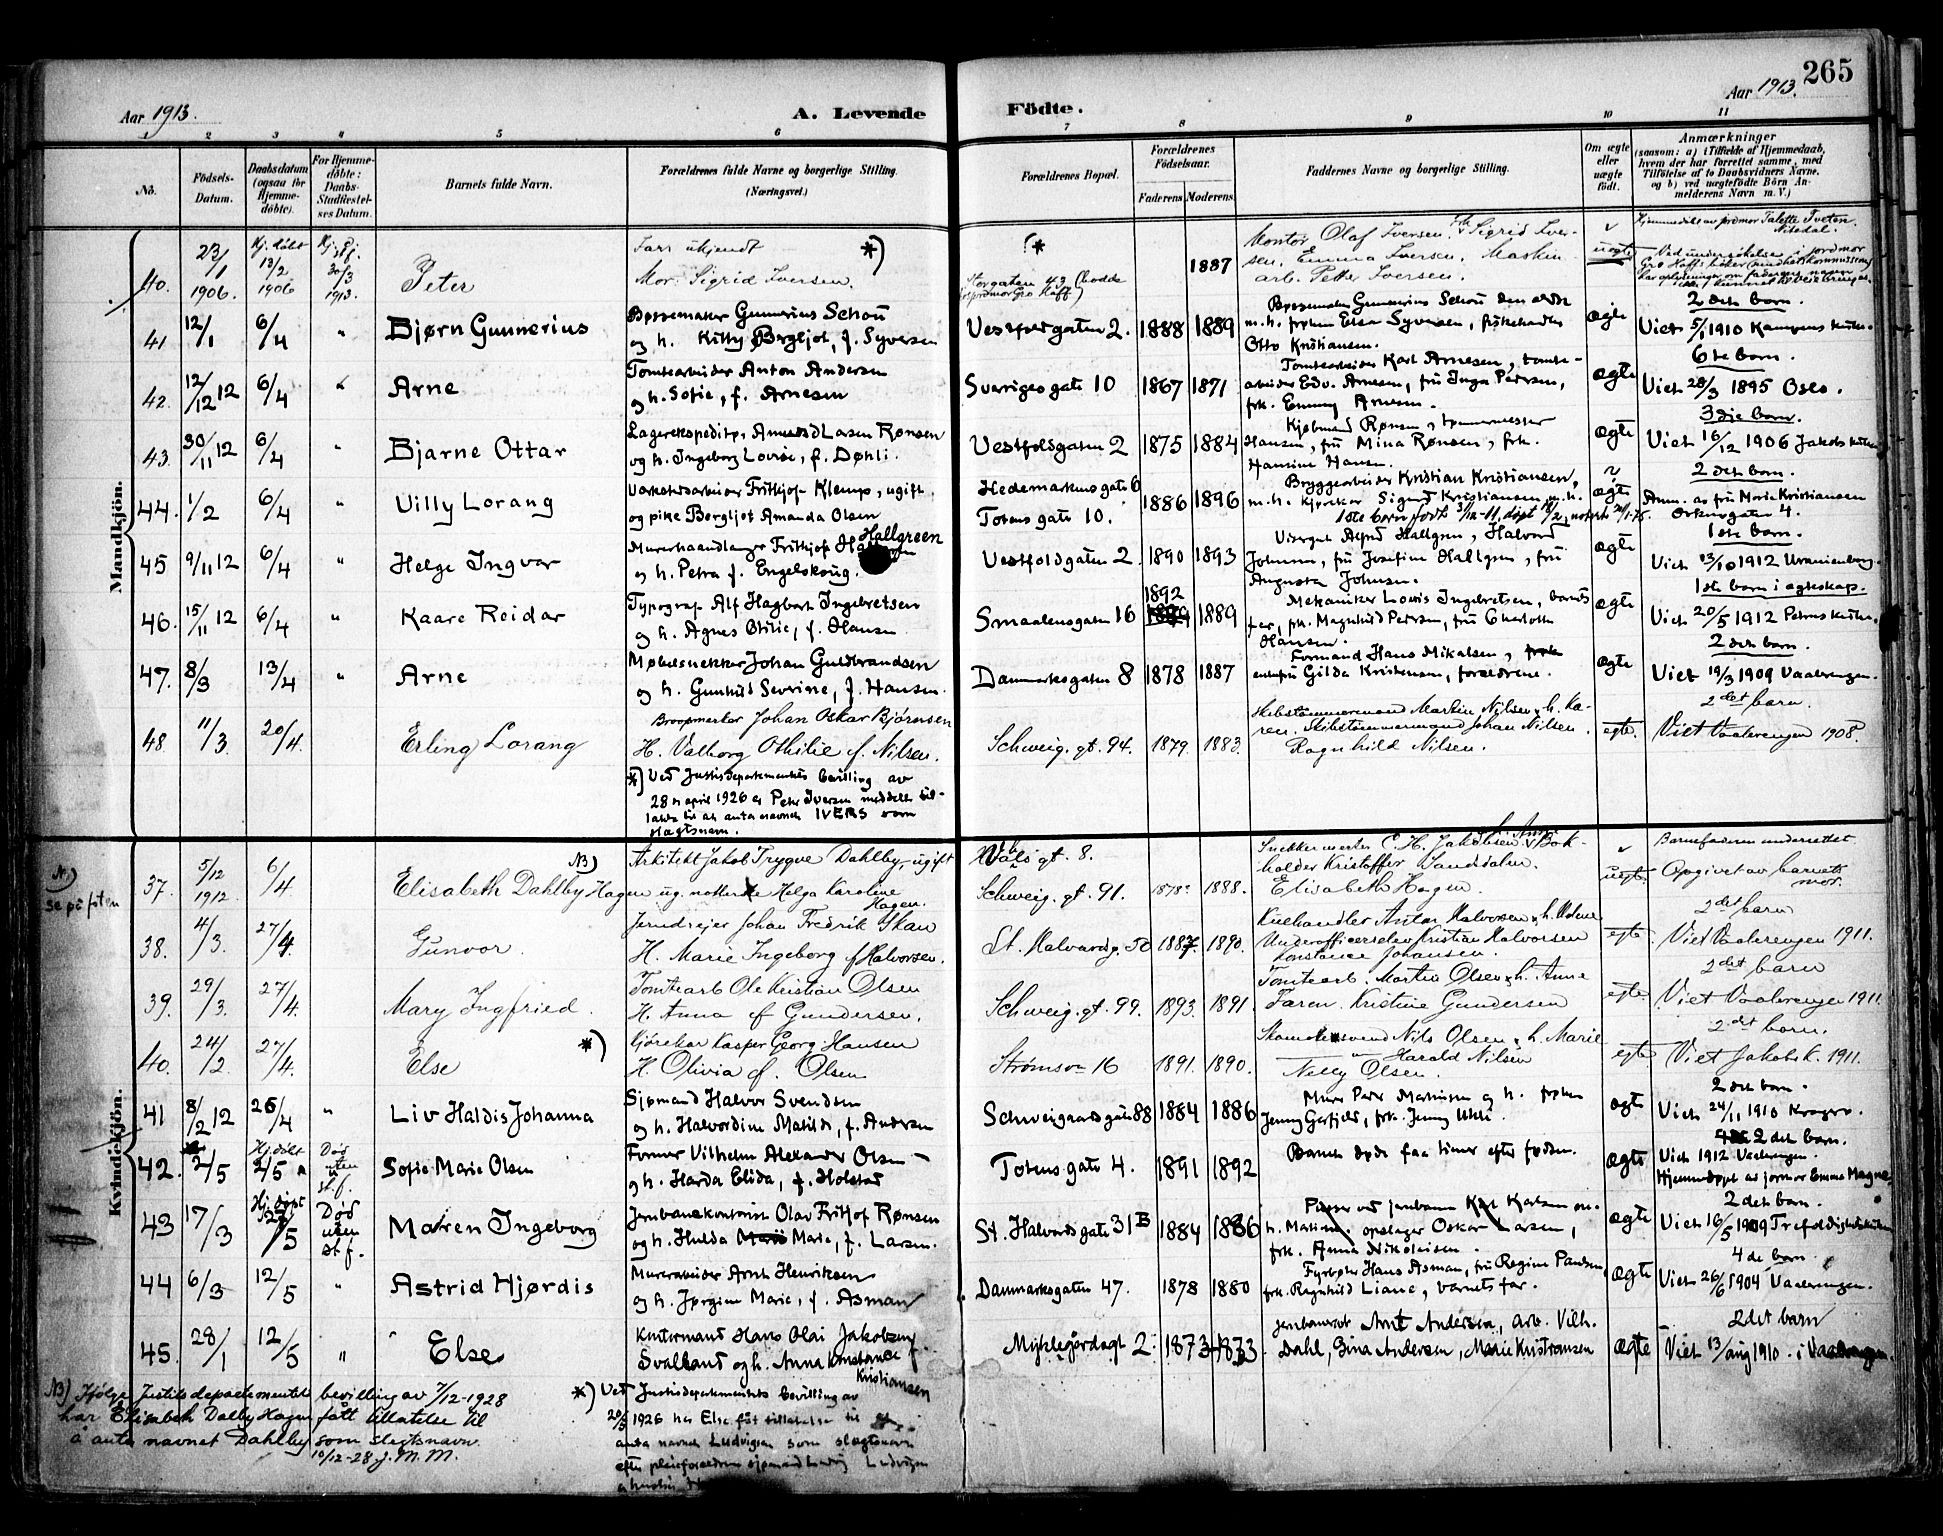 265
Aar 1913.
A. Levende
Födte.
Aar 1913.
1 2 3 4 5 6 7 8 9 10 11
No.
Födsels-
Datum.
Daabsdatum
(ogsaa for
Hjemme-
döbte).
For Hjemme-
döbte:
Daabs-
Stadfæstel-
ses Datum.
Barnets fulde Navn.
Forældrenes fulde Navne og borgerlige Stilling.
(Næringsvei.)
Forældrenes Bopæl.
Forældrenes
Födselsaar.
Faderens Moderens
Faddernes Navne og borgerlig Stilling.
Om ægte
eller
uægte
födt.
Anmærkninger
(saasom: a) i Tilfælde af Hjemmedaab,
hvem der har forrettet samme, med
Tilföielse af to Daabsvidners Navne,
og b) ved uægtefödte Börn An-
melderens Navn m. V.)
Mandkjön.
40. 23/1 1906. Hj. døbt 13/2 1906 30/3 1913. Peter
Far: ukjendt *)
Mor: Sigrid Iversen.
(* Storgaten 43
1887
Kontor. Olaf Iversen, Sigrid Iver-
sen, Emma Iversen. Maskin
arb. Petter Iversen.
uægte
41 12/1 6/4 " Bjørn Gunnerius
Børsemaker Gunnerius Schou
og h. Kitty Bergljot, f. Syversen
Vestfoldgaten 2. 1888 1889
Børsemaker Gunnerius Schou den ældre
m.h. frøken Elsa Syversen, fiskehandler
Otto Kristiansen.
ægte
2 det barn.
Viet 5/1 1910 Kampens kirke.
42. 12/12 12 6/4 " Arne
Tomtearbeider Anton Andersen
og h. Sofie, f. Arnesen
Sverigesgate 10 1867 1871
Tomtearbeider Karl Arnesen, tomte-
arbeider Edv. Arnesen, fru Inga Persen,
frk. Emmy Arnesen.
ægte
6 te barn.
Viet 28/3 1895 Oslo.
43. 30/11 12 6/4 " Bjarne Ottar
Lagerekspeditør Amund Larsen Rønsen
og h. Ingeborg Lovise, f. Døhli.
Vestfoldgaten 2 1875 1884
Kjøbmand Rønsen, tømmermester
Hansen, fru Mina Rønsen, frk.
Hansine Hansen.
ægte
3 die barn.
Viet 16/12 1906 Jakobs kirke
44. 1/2 6/4 " Villy Lorang
Verkstedsarbeider Frithjof Klemp, ugift
og pike Bergljot Amanda Olsen
Hedemarkensgate 6
Totens gate 10.
1886 1896
Bryggearbeider Kristian Kristiansen,
m.h. Sigurd Kristiansen m.h.
ægte
2 det barn.
Anm. av fru Marie Kristiansen
Orknøgaten 4.
45 9/11 12 6/4 " Helge Ingvar
Murerhaandlanger Frithjof Hallgreen
og h. Petra f. Engelskoug.
Vestfoldgaten 2. 1890 1893
Visergut Alfred Hallgren, Halvard
Johnsen, fru Josefine Hallgren, fru
Augusta Johnsen.
ægte
1 ste barn.
Viet 13/10 1912 Uranienborg.
46. 15/11 12 6/4 " Kaare Reidar
Typograf Alf Hagbart Ingebretsen
og h. Agnes Otilie, f. Hansen
Smaalensgaten 16 1892 1889
Mekaniker Louis Ingebretsen, barnets
far, frk. Magnhild Persen, fru Charlotte
Hansen.
ægte
1 ste barn i ægteskap.
Viet 20/5 1912 Petrus kirke.
47. 8/3 13/4 " Arne
Møbelsnekker Johan Guldbrandsen
og h. Gunhild Severine, f. Hansen.
Danmarksgaten 8 1878 1887
Formand Hans Mikalsen,
enkefru Gilda Kristensen, forældrene.
ægte
2 det barn.
Viet 19/3 1909 Vaalerengen.
48. 11/3 20/4. Erling Lorang
Johan Oskar Bjørnsen
H. Valborg Othilie f. Nilsen.
Schweig. gt. 94. 1879. 1883.
Skibstømmermand Martin Nilsen & h. Ka-
ren. Skibstømmermand Johan Nilsen.
Ragnhild Nilsen.
egte.
2det barn.
Viet Vaalerengen 1908.
*) Ved Justisdepartementets bevilling av
28de april 1926 er Peter Iversen meddelt til-
latelse til at anta navnet IVERS som
slegtsnavn.
Kvindekjön.
N.)
se på foten
37. 5/12 1912. 6/4 Elisabeth Dahlby Hagen NB)
Arkitekt Jakob Trygve Dahlby, ugift
ug. Helga Karoline
Hagen.
Schweig. gt. 91. 1878. 1888.
Snekkermester C. H. Jakobsen & Bok-
holder Kristoffer Sanddalen.
Elisabeth Hagen.
uegte.
Barnefaderen underrettet.
Opgivet av barnets
mor.
38. 4/3. 27/4. Gunvor.
Jerndrejer Johan Fredrik Skau
H. Marie Ingeborg f Halvorsen.
St. Halvardsg. 50 1887. 1890.
Kulhandler Anton Halvorsen & h.
Underofficerselev Kristian Halvorsen
Konstance Johansen.
egte.
2det barn
Viet Vaalerengen 1911.
39. 29/3. 27/4. Mary Ingfried.
Tomtearb Ole Kristian Olsen
H. Anna f Gundersen.
Schweig. gt. 99. 1893. 1891.
Tomtearb. Martin Olsen & h. Anne
Karen. Kristine Gundersen
egte.
2det barn
Viet Vaalerengen 1911.
40. 24/2. 27/4. Else *)
Kjørekar Kasper Georg Hansen
H. Olivia f. Olsen
Strømsv 16 1891. 1890.
Skomakersvend Nils Olsen & h. Marie
" Harald Nilsen
Nelly Olsen.
egte.
2det barn.
Viet Jakobsk. 1911.
41 8/2 12 26/4 " Liv Haldis Johanna
Sjømand Halvor Svendsen
og h. Halvordine Matilde, f. Andersen
Schweigaardsgate 88 1884 1886
Murer Peder Martinsen og h. frøken
Jenny Gerfjeld, frk. Jenny
ægte
2 det barn.
Viet 24/11 1910 Kragerø.
42. 2/5 Hj. døbt 2/5 Død uten st.f. Sofie Marie Olsen
Former Vilhelm Alexander Olsen
og h. Harda Elida, f. Holstad
Totens gate 4. 1891 1892
Barnet døde faa timer efter fødsen.
ægte
2 det barn.
Viet 1912 Vaalerengen.
Hjemmedøpt av jormor Emma Magnes
43 17/3 Hj. døpt 2/5 Død uten st.f. Maren Ingeborg
Jernbanekontorist Olav Frithjof Rønsen
og h. Hulda Marie, f. Larsen.
St. Halvards gate 31 B 1884 1886
Pusser ved jernbanen Karl Karlsen m.
h. Matilde, opslager Oskar Larsen,
frk. Anna Nikolaisen.
ægte
2 det barn.
Viet 16/5 1909 Trefoldighetskirken
44 6/3 12/5 " Astrid Hjørdis
Murerarbeider Arnt Henriksen
og h. Jørgine Marie, f. Asman
Danmarksgaten 47. 1878 1880
Fyrbøter Hans Asman, fru Regine Paulsen,
frk. Ragnhild Liane, barnets far.
ægte
4 de barn.
Viet 26/6 1904 Vaalerengen.
45. 28/1 12/5 " Else
Kontormand Hans Olai Jakobsen
Svalland og h. Anna Konstance f.
Kristiansen
Myklegårdsgt 2. 1873 1873
Jernbanevogt Arnt Andersen, arb. Vilh.
Dahl, Gina Andersen, Marie Kristiansen
ægte
2det barn
Viet 13/aug 1910. i Vaalerengen.
NB) Ifølge Justisdepartementets bevilling av 7/12-1928
har Elisabeth Dalby Hagen fått tillatelse til
å anta navnet Dahlby som slegtsnavn.
10/12-28 J. M. M.
*) Ved Justisdepartementets bevilling av
20/5 1926 har Else fåt tillatelse til at
anta navnet Ludvigsen som slægtsnavn
efter pleieforældrene sjømand Ludvig Ludvigsen